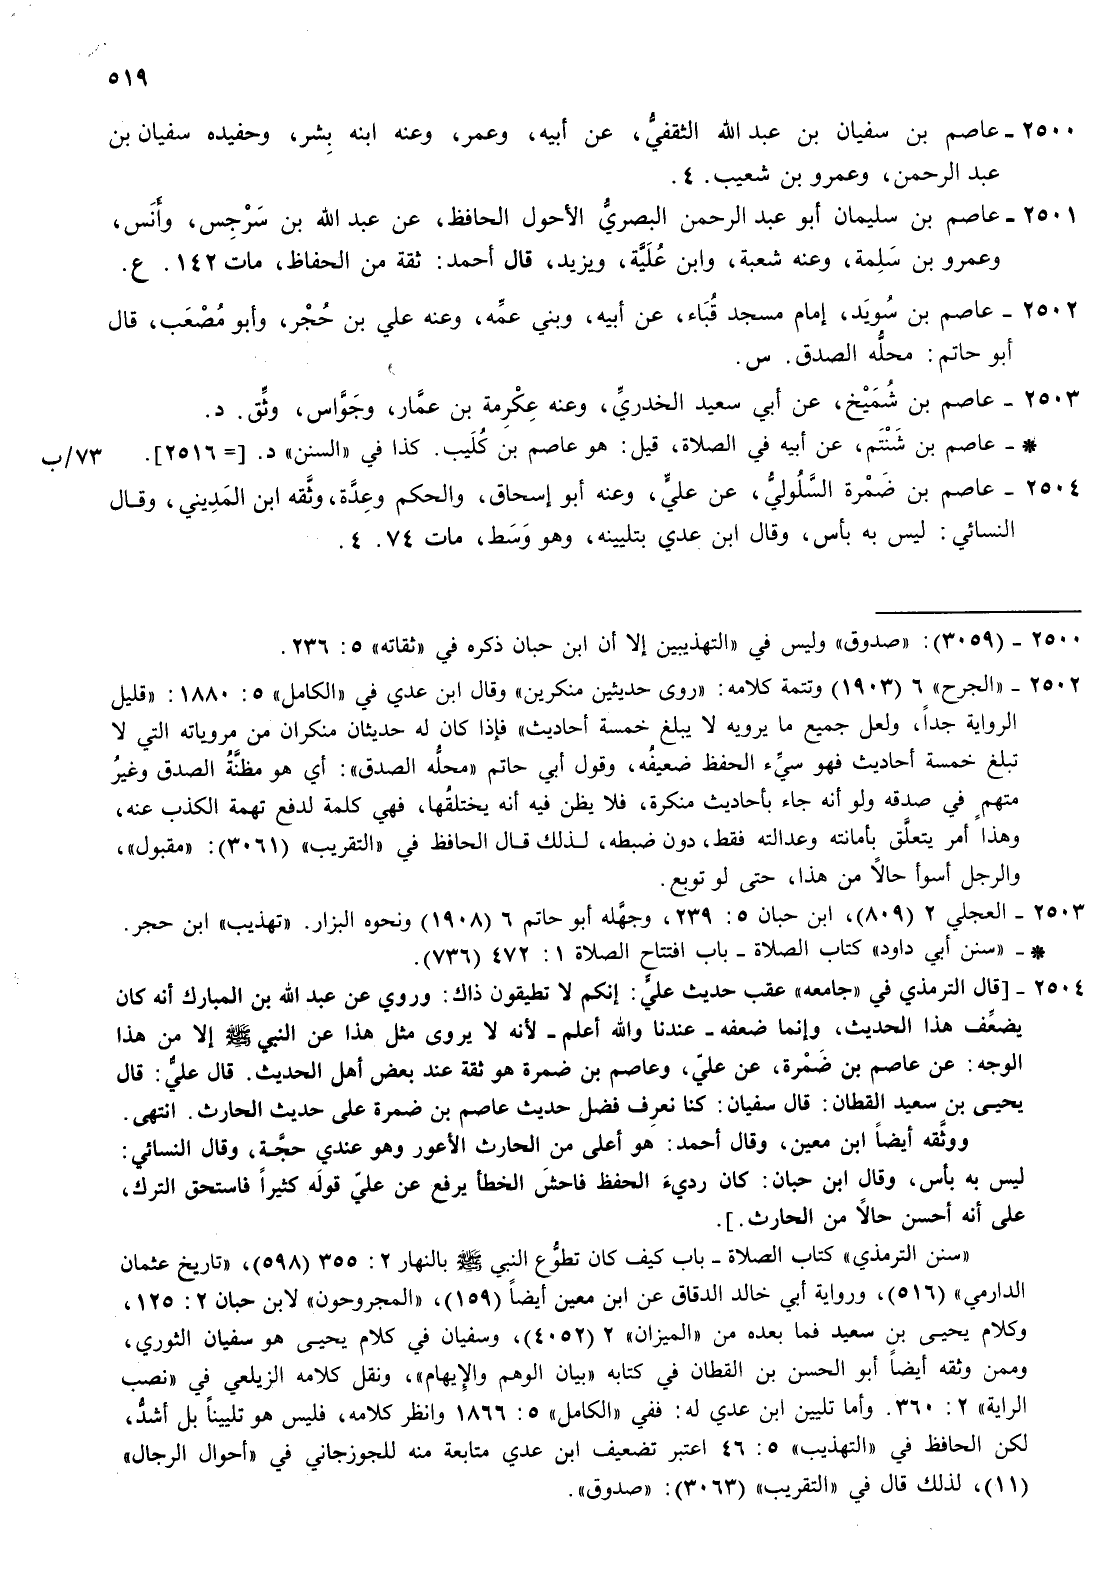 ٥١٩
٢٥٠٠ ـ عاصم بن سفيان بن عبد الله الثقفيُّ، عن أبيه، وعمر، وعنه ابنه بِشر، وحفيده سفيان بن
عبد الرحمن، وعمرو بن شعيب. ٤.
٢٥٠١ ـ عاصم بن سليمان أبو عبد الرحمن البصريُّ الأحول الحافظ، عن عبد الله بن سَرْجِس، وأَنَس،
وعمرو بن سَلِمة، وعنه شعبة، وابن عُلَيَّة، ويزيد، قال أحمد: ثقة من الحفاظ، مات ١٤٢. ع.
٢٥٠٢ ـ عاصم بن سُويَد، إمام مسجد قُبَاء، عن أبيه، وبني عمِّه، وعنه علي بن حُجْر، وأبو مُصْعَب، قال
أبو حاتم: محلُّه الصدق. س.
٢٥٠٣ ـ عاصم بن شُمَيْخ، عن أبي سعيد الخدريِّ، وعنه عِكْرِمة بن عمَّار، وجَوَّاس، وثِّق. د.
* ـ عاصم بن شَنْتَم، عن أبيه في الصلاة، قيل: هو عاصم بن كُلَيب. كذا في «السنن» د. [= ٢٥١٦]. ٧٣/ب
٢٥٠٤ ـ عاصم بن ضَمْرة السَّلُوليُّ، عن عليٍّ، وعنه أبو إسحاق، والحكم وعِدَّة، وثَّقه ابن المَدِيني، وقال
النسائي: ليس به بأس، وقال ابن عدي بتليينه، وهو وَسَط، مات ٧٤. ٤.
٢٥٠٠ ـ (٣٠٥٩): «صدوق» وليس في «التهذيبين إلا أن ابن حبان ذكره في «ثقاته» ٥: ٢٣٦.
٢٥٠٢ ـ «الجرح» ٦ (١٩٠٣) وتتمة كلامه: «روى حديثين منكرين» وقال ابن عدي في «الكامل» ٥: ١٨٨٠: «قليل
الرواية جداً، ولعل جميع ما يرويه لا يبلغ خمسة أحاديث» فإذا كان له حديثان منكران من مروياته التي لا
تبلغ خمسة أحاديث فهو سيِّء الحفظ ضعيفُه، وقول أبي حاتم «محلُّه الصدق»: أي هو مظنَّةُ الصدق وغيرُ
متهمٍ في صدقه ولو أنه جاء بأحاديث منكرة، فلا يظن فيه أنه يختلقُها، فهي كلمة لدفع تهمة الكذب عنه،
وهذا أمر يتعلَّق بأمانته وعدالته فقط، دون ضبطه، لذلك قال الحافظ في «التقريب» (٣٠٦١): «مقبول»،
والرجل أسوأ حالاً من هذا، حتى لو توبع.
٢٥٠٣ ـ العجلي ٢ (٨٠٩)، ابن حبان ٥: ٢٣٩، وجهَّله أبو حاتم ٦ (١٩٠٨) ونحوه البزار. «تهذيب» ابن حجر.
* ـ «سنن أبي داود» كتاب الصلاة ـ باب افتتاح الصلاة ١: ٤٧٢ (٧٣٦).
٢٥٠٤ ـ [قال الترمذي في «جامعه» عقب حديث عليٍّ: إنكم لا تطيقون ذاك: وروي عن عبد الله بن المبارك أنه كان
يضعِّف هذا الحديث، وإنما ضعفه ـ عندنا والله أعلم ـ لأنه لا يروى مثل هذا عن النبي ﷺ إلا من هذا
الوجه: عن عاصم بن ضَمْرة، عن عليّ، وعاصم بن ضمرة هو ثقة عند بعض أهل الحديث. قال عليٌّ: قال
يحيى بن سعيد القطان: قال سفيان: كنا نعرِف فضل حديث عاصم بن ضمرة على حديث الحارث. انتهى.
ووثَّقه أيضاً ابن معين، وقال أحمد: هو أعلى من الحارث الأعور وهو عندي حجَّة، وقال النسائي:
ليس به بأس، وقال ابن حبان: كان رديءَ الحفظ فاحشَ الخطأ يرفع عن عليّ قولَه كثيراً فاستحق الترك،
على أنه أحسن حالاً من الحارث.].
«سنن الترمذي» كتاب الصلاة ـ باب كيف كان تطوُّع النبي ﷺ بالنهار ٢: ٣٥٥ (٥٩٨)، «تاريخ عثمان
الدارمي» (٥١٦)، ورواية أبي خالد الدقاق عن ابن معين أيضاً (١٥٩)، «المجروحون» لابن حبان ٢: ١٢٥،
وكلام يحيى بن سعيد فما بعده من «الميزان» ٢ (٤٠٥٢)، وسفيان في كلام يحيى هو سفيان الثوري،
وممن وثقه أيضاً أبو الحسن بن القطان في كتابه «بيان الوهم والإيهام»، ونقل كلامه الزيلعي في «نصب
الراية» ٢: ٣٦٠. وأما تليين ابن عدي له: ففي «الكامل» ٥: ١٨٦٦ وانظر كلامه، فليس هو تلييناً بل أشدُّ،
لكن الحافظ في «التهذيب» ٥: ٤٦ اعتبر تضعيف ابن عدي متابعة منه للجوزجاني في «أحوال الرجال»
(١١)، لذلك قال في «التقريب» (٣٠٦٣): «صدوق».